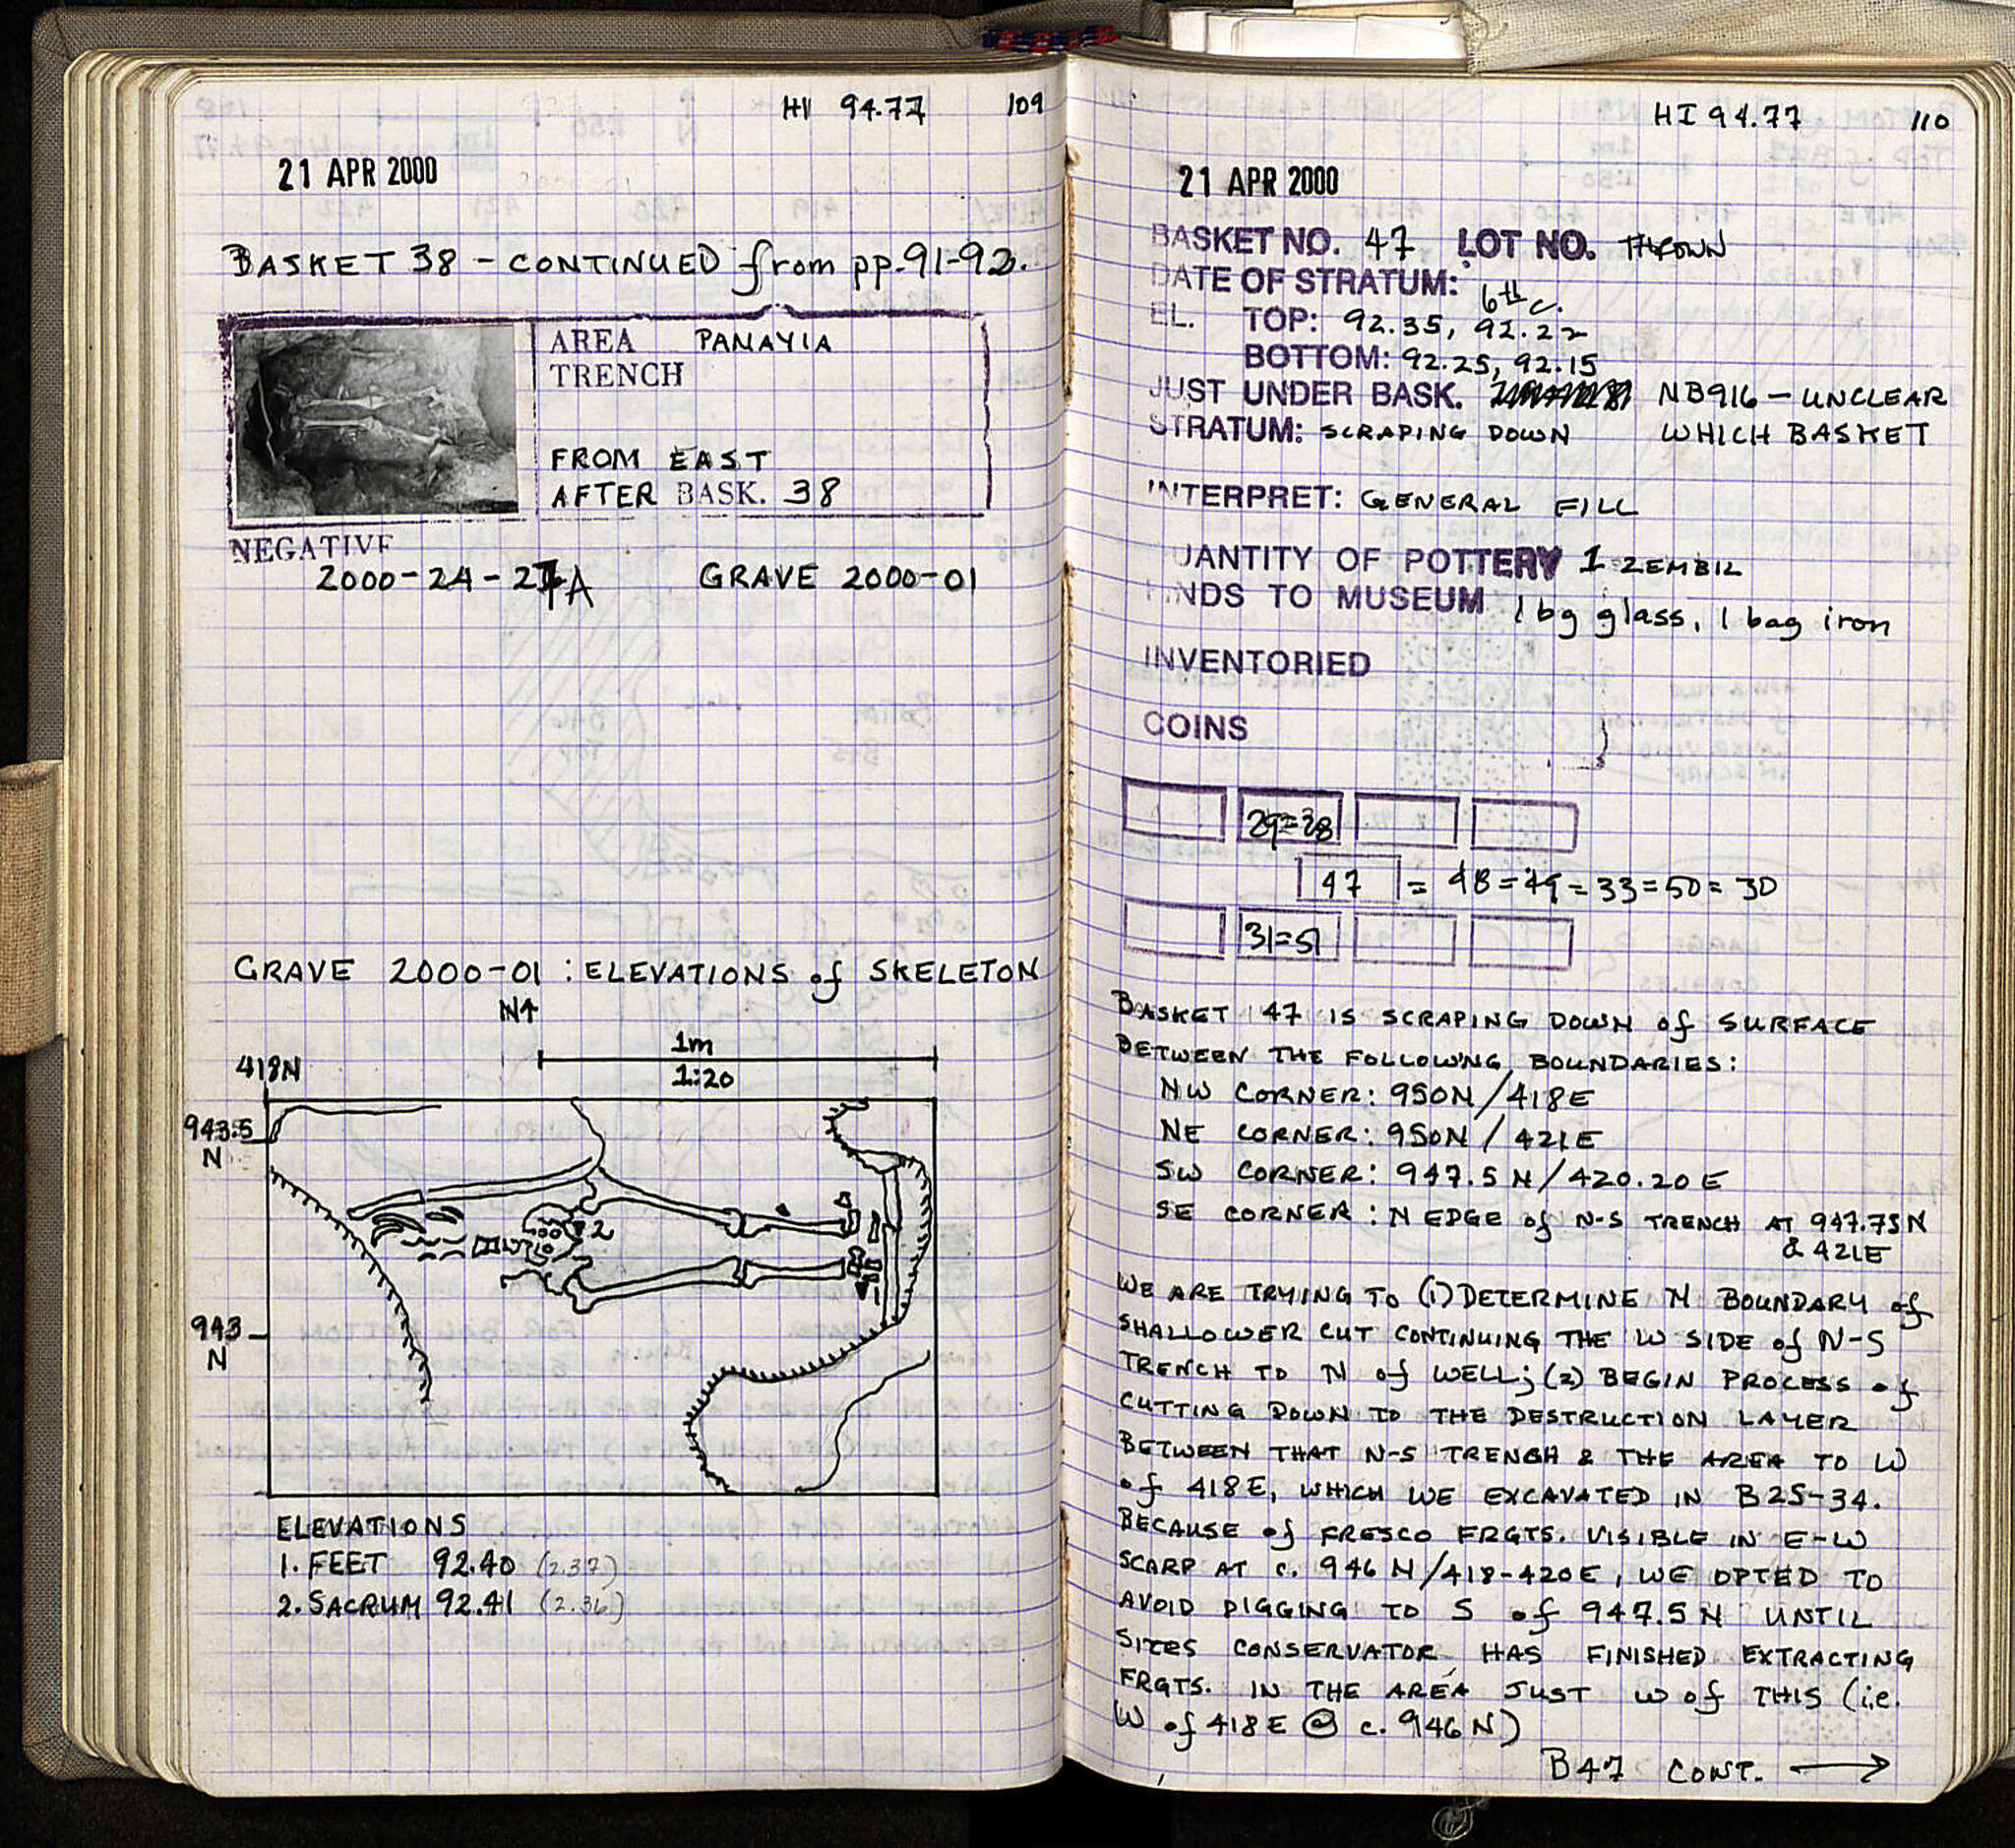 HI 94.77 109
21 APR 2000
BASKET 38 - CONTINUED from pp. 91-92.
AREA PANAYIA
TRENCH
FROM EAST
AFTER BASK. 38
NEGATIVE
2000-24-27A GRAVE 2000-01
GRAVE 2000-01 : ELEVATIONS of SKELETON
N↑
1m
1:20
418N
943.5
N
2
1
943
N
ELEVATIONS
1. FEET 92.40 (2.37)
2. SACRUM 92.41 (2.36)
HI 94.77 110
21 APR 2000
BASKET NO. 47 LOT NO. THROWN
DATE OF STRATUM: 6th c.
EL. TOP: 92.35, 92.22
BOTTOM: 92.25, 92.15
JUST UNDER BASK. NB916 - UNCLEAR
STRATUM: SCRAPING DOWN WHICH BASKET
INTERPRET: GENERAL FILL
QUANTITY OF POTTERY 1 ZEMBIL
FINDS TO MUSEUM 1 bg glass, 1 bag iron
INVENTORIED
COINS
29=38
47 = 48=49=33=50=30
31=51
BASKET 47 IS SCRAPING DOWN of SURFACE
BETWEEN THE FOLLOWING BOUNDARIES:
NW CORNER: 950N/418E
NE CORNER: 950N / 421E
SW CORNER: 947.5 N/420.20 E
SE CORNER: N EDGE of N-S TRENCH AT 947.75N
& 421E
WE ARE TRYING TO (1) DETERMINE N BOUNDARY of
SHALLOWER CUT CONTINUING THE W SIDE of N-S
TRENCH TO N of WELL; (2) BEGIN PROCESS of
CUTTING DOWN TO THE DESTRUCTION LAYER
BETWEEN THAT N-S TRENCH & THE AREA TO W
of 418E, WHICH WE EXCAVATED IN B25-34.
BECAUSE of FRESCO FRGTS. VISIBLE IN E-W
SCARP AT c. 946 N/418-420E, WE OPTED TO
AVOID DIGGING TO S of 947.5 N UNTIL
SITES CONSERVATOR HAS FINISHED EXTRACTING
FRGTS. IN THE AREA JUST W of THIS (i.e.
W of 418 E @ c. 946 N)
B47 CONT. →